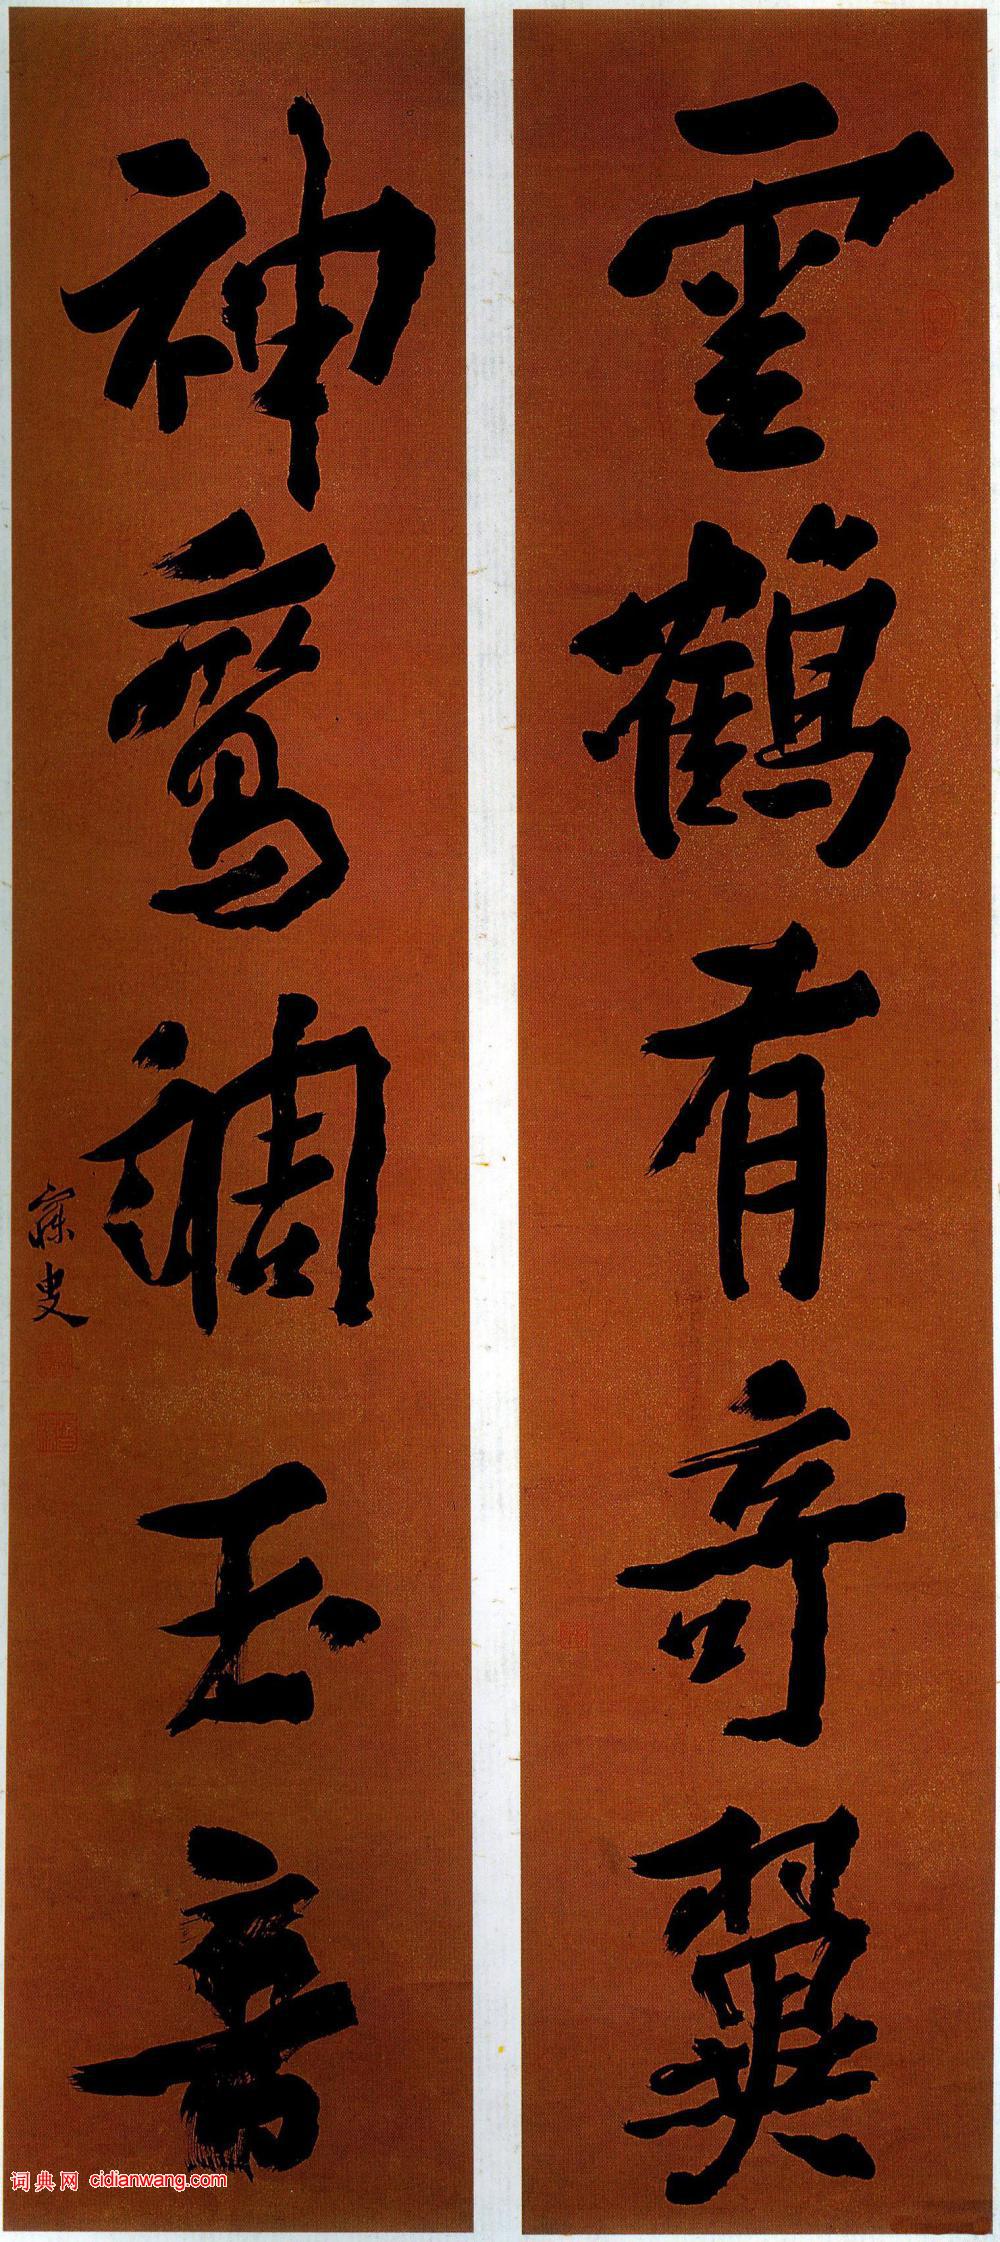 雲鶴有奇翼
神鸞調玉音
寐叟
词典网 cidianwang.com